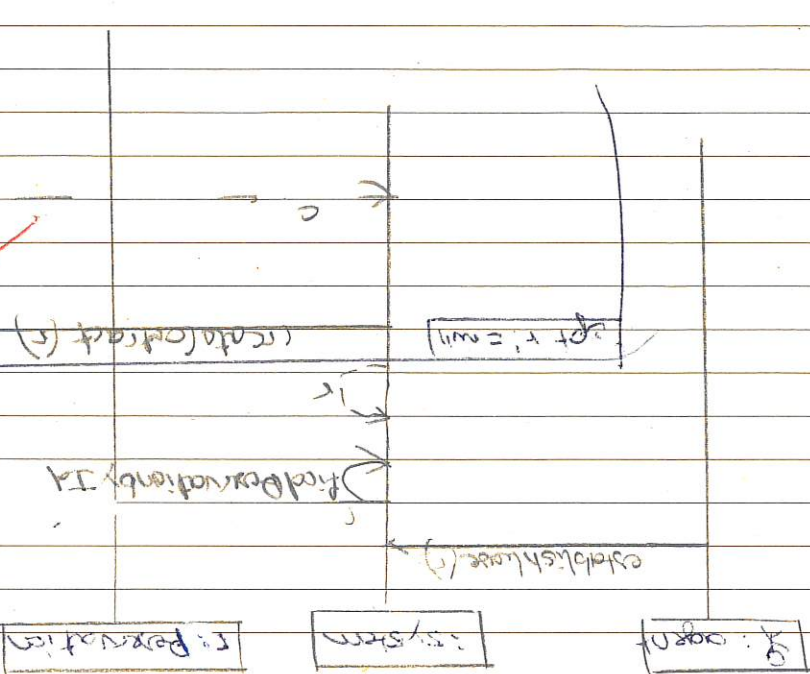 a: agent
:System
r: Reservation
establishLease(r)
findReservationbyId
r
opt r != null
createContract(r)
c